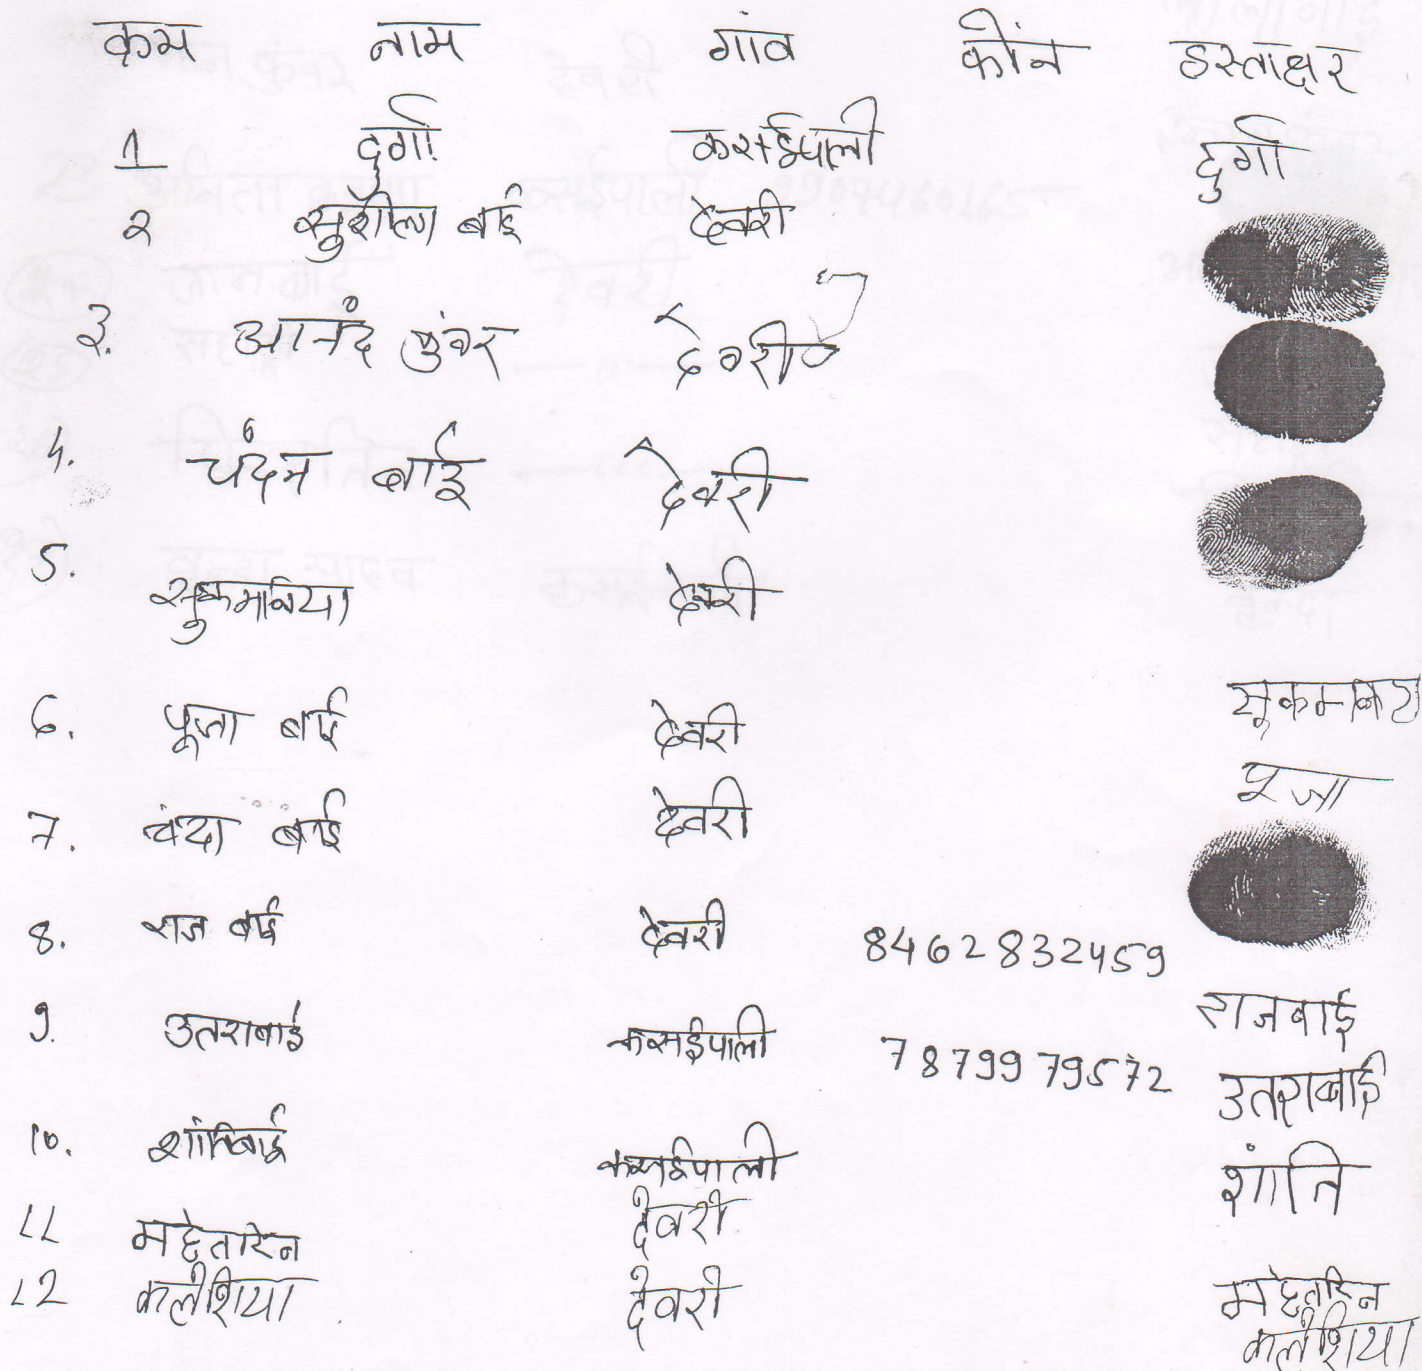 क्रम नाम गांव फोंन हस्ताक्षर
1 दुर्गा कसईपाली दुर्गा
२ सुशीला बाई देवरी
३. आनंद कुंवर देवरी
4. चंदन बाई देवरी
5. सुकमनिया देवरी
6. पूजा बाई देवरी
7. चंदा बाई देवरी पूजा
8. राज बाई देवरी 8462832459
9. उतराबाई कसईपाली 7879979572 राजबाई
उतराबाई
10. शांतिबाई कसईपाली शांति
11 महेतरिन देवरी
12 कलेशिया देवरी महेतरिन
कलेशिया